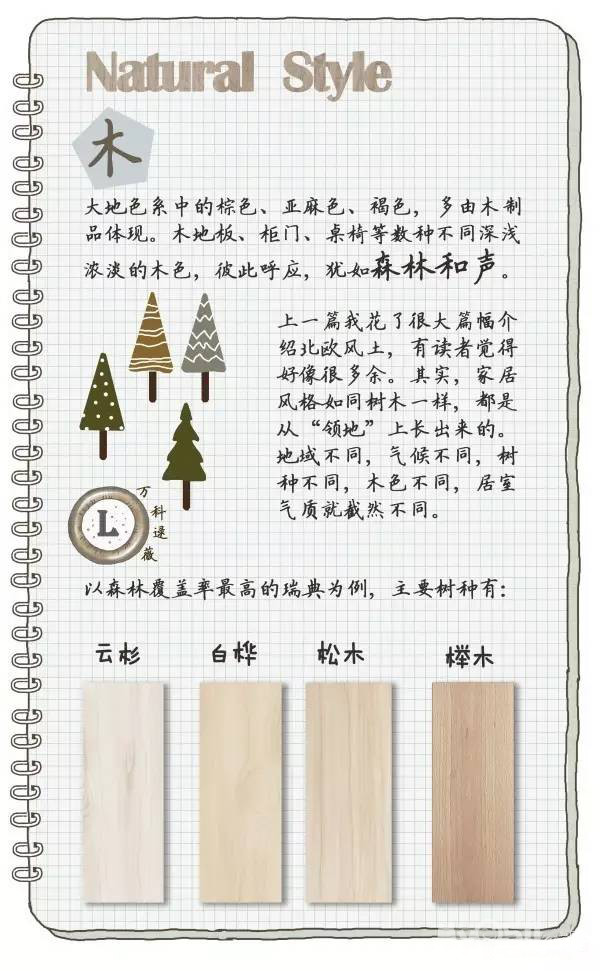 Natural Style
木
大地色系中的棕色、亚麻色、褐色，多由木制
品体现。木地板、柜门、桌椅等数种不同深浅
浓淡的木色，彼此呼应，犹如森林和声。
上一篇我花了很大篇幅介
绍北欧风土，有读者觉得
好像很多余。其实，家居
风格如同树木一样，都是
从“领地”上长出来的。
地域不同，气候不同，树
种不同，木色不同，居室
气质就截然不同。
L
万科逯薇
以森林覆盖率最高的瑞典为例，主要树种有：
云杉 白桦 松木 榉木